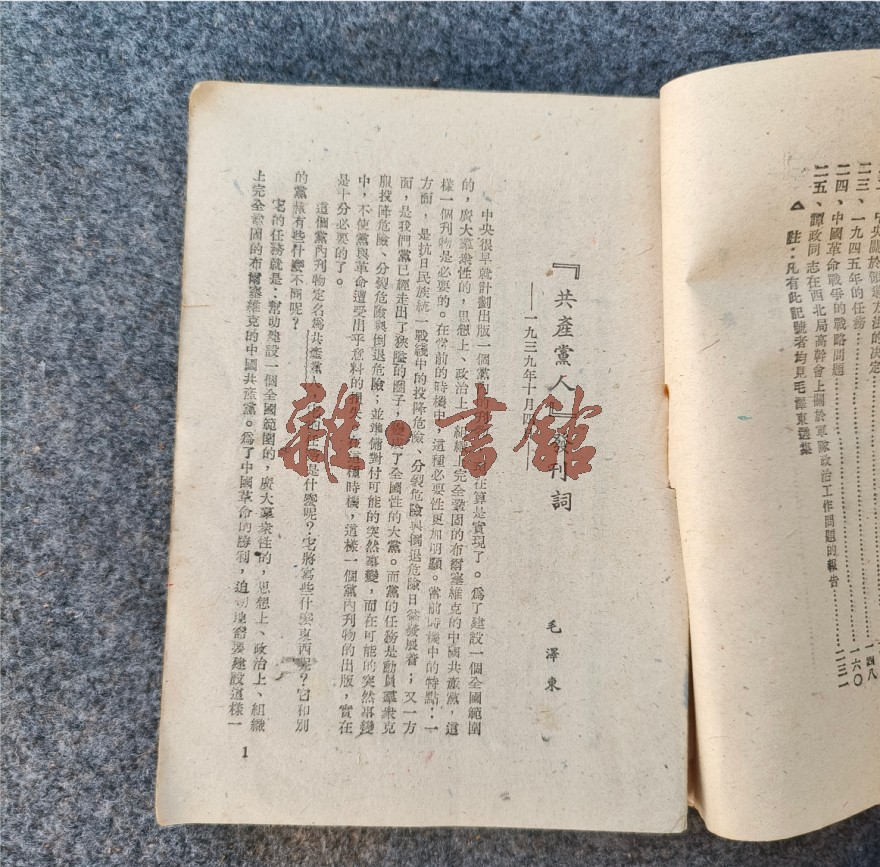 二三、一九四五年的任務……一四八
二四、中國革命戰爭的戰略問題……一六〇
二五、譚政同志在西北局高幹會上關於軍隊政治工作問題的報告……一三一
▲ 註:凡有此記號者均見毛澤東選集
『共產黨人』發刊詞
——一九三九年十月四
毛澤東
中央很早就計劃出版一個黨內刊物,在算是實現了。爲了建設一個全國範圍
的,廣大羣衆性的,思想上、政治上組織上完全鞏固的布爾塞維克的中國共產黨,這
樣一個刊物是必要的。在當前的時機中,這種必要性更加明顯。當前時機中的特點:一
方面,是抗日民族統一戰綫中的投降危險、分裂危險與倒退危險日益發展着;又一方
面,是我們黨已經走出了狹隘的圈子,成了全國性的大黨。而黨的任務是動員羣衆克
服投降危險、分裂危險與倒退危險;並準備對付可能的突然事變,而在可能的突然事變
中,不使黨與革命遭受出乎意料的損失。這種時機,這樣一個黨內刊物的出版,實在
是十分必要的了。
這個黨內刊物定名爲共產黨人是什麼呢?它將寫些什麼東西呢?它和別
的黨報有些什麼不同呢?
它的任務就是:幫助建設一個全國範圍的,廣大羣衆性的,思想上、政治上、組織
上完全鞏固的布爾塞維克的中國共產黨。爲了中國革命的勝利,迫切地需要建設這樣一
1
雜·書館